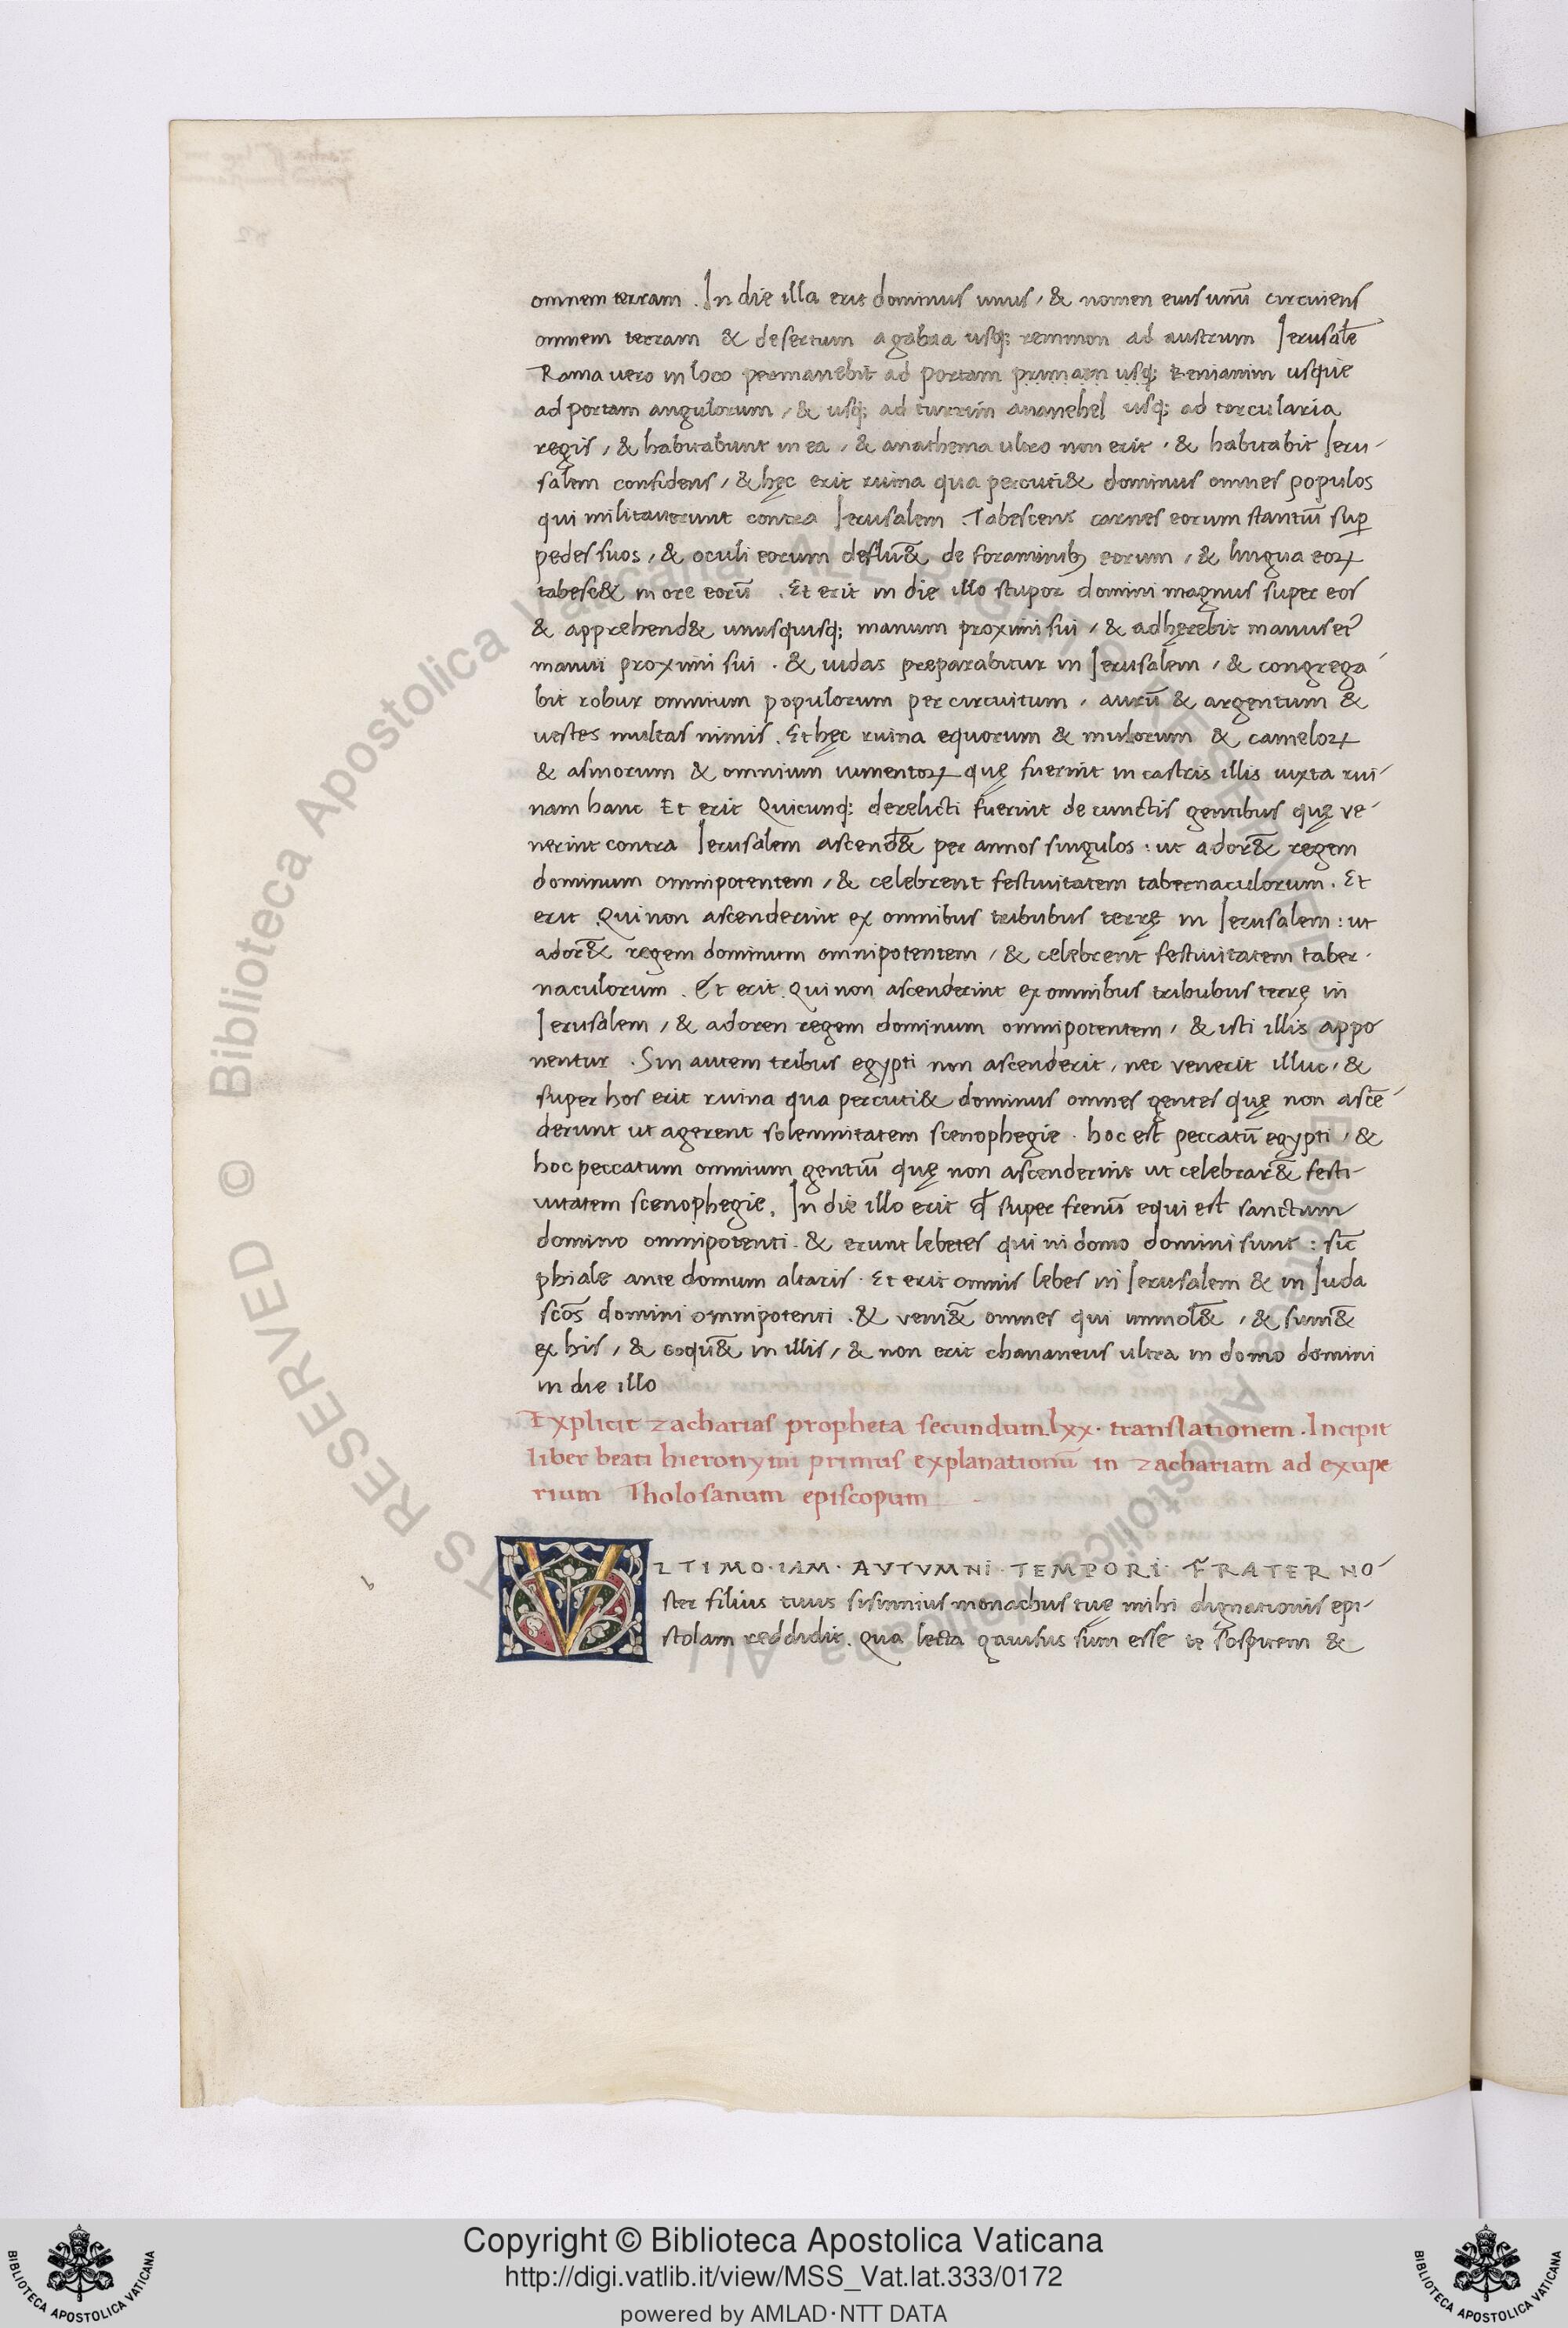 omnem terram . In die illa erit dominus unus / & nomen eius unũ circuiens
omnem terram & desertum agabaa usq; remmon ad austrum Jerusalẽ
Rama vero in loco permanebit ad portam primam usq; Beniamim usque
ad portam angulorum / & usq; ad turrim ananehel usq; ad torcularia
regis / & habitabunt in ea / & anathema ultro non erit / & habitabit Jeru-
salem confidens / & hęc erit ruina qua percuti& dominus omnes populos
qui militaverunt contra Jerusalem . Tabescent carnes eorum stantiũ sup̱
pedes suos / & oculi eorum deflu&̃ de foraminibꝫ eorum / & lingua eoꝝ
tabesc& in ore eorũ . Et erit in die illo stupor domini magnus super eos
& apprehend& unusquisq; manum proximi sui / & adherebit manus eiꝰ
manui proximi sui . & iudas preparabitur in Jerusalem / & congrega-
bit robur omnium populorum per circuitum / aurũ & argentum &
vestes multas nimis . Et hęc ruina equorum & mulorum & cameloꝝ
& asinorum & omnium iumentoꝝ quę fuerint in castris illis iuxta rui-
nam hanc Et erit Quicunq; derelicti fuerint de cunctis gentibus quę ve-
nerint contra Jerusalem ascend&̃ per annos singulos : ut ador&̃ regem
dominum omnipotentem / & celebrent festivitatem tabernaculorum . Et
erit Qui non ascenderint ex omnibus tribubus terrę in Jerusalem : ut
ador&̃ regem dominum omnipotentem / & celebrent festivitatem taber-
naculorum . Et erit Qui non ascenderint ex omnibus tribubus terrę in
Jerusalem / & adoren regem dominum omnipotentem / & isti illis appo
nentur . Sin autem tribus egypti non ascenderit / nec venerit illuc / &
super hos erit ruina qua percuti& dominus omnes gentes quę non ascẽ-
derunt ut agerent solemnitatem scenophegie . hoc est peccatũ egypti / &
hoc peccatum omnium gentiũ quę non ascenderint ut celebrar&̃ festi-
vitatem scenophegie . In die illo erit qđ super frenũ equi est sanctum
domino omnipotenti . & erunt lebetes qui in domo domini sunt : sic̃
phiale ante domum altaris . Et erit omnis lebes in Jerusalem & in Juda
scõs domini omnipotenti . & veni&̃ omnes qui immol&̃ / & sum&̃
ex his / & coqu&̃ in illis / & non erit chananeus ultra in domo domini
in die illo
Explicit zacharias propheta secundum lxx. translationem . Incipit
liber beati hieronymi primus explanationũ in zachariam ad exupe
rium Tholosanum episcopum
VLTIMO . IAM . AVTVMNI . TEMPORI . FRATER NO-
ster filius tuus sisinnius monachus tuę mihi dignationis epi-
stolam reddidit . Qua lecta gavisus sum esse te sospitem &
Copyright © Biblioteca Apostolica Vaticana
http://digi.vatlib.it/view/MSS_Vat.lat.333/0172
powered by AMLAD·NTT DATA